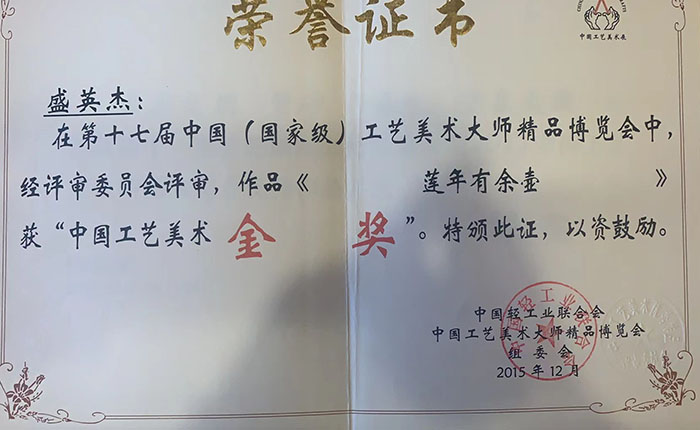 荣誉证书
中国工艺美术展
盛英杰：
在第十七届中国（国家级）工艺美术大师精品博览会中，
经评审委员会评审，作品《莲年有余壶》
获“中国工艺美术金奖”。特颁此证，以资鼓励。
中国轻工业联合会
中国工艺美术大师精品博览会
组委会
2015年12月